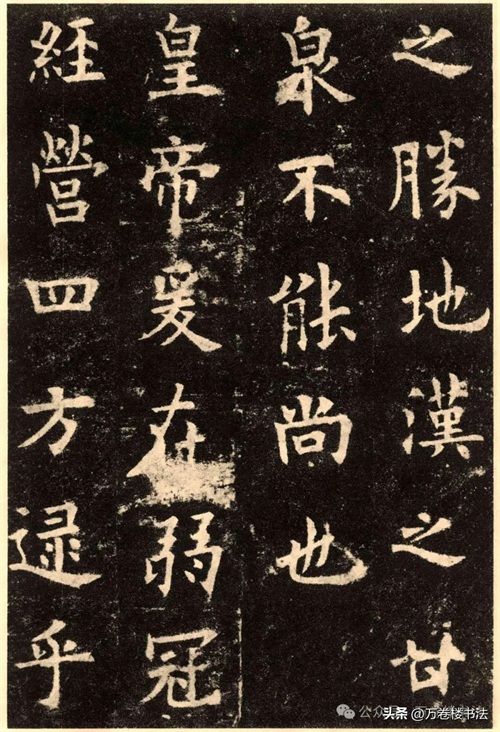 之勝地漢之甘
泉不能尚也
皇帝爰在弱冠
經營四方逯乎
头条 @万卷楼书法